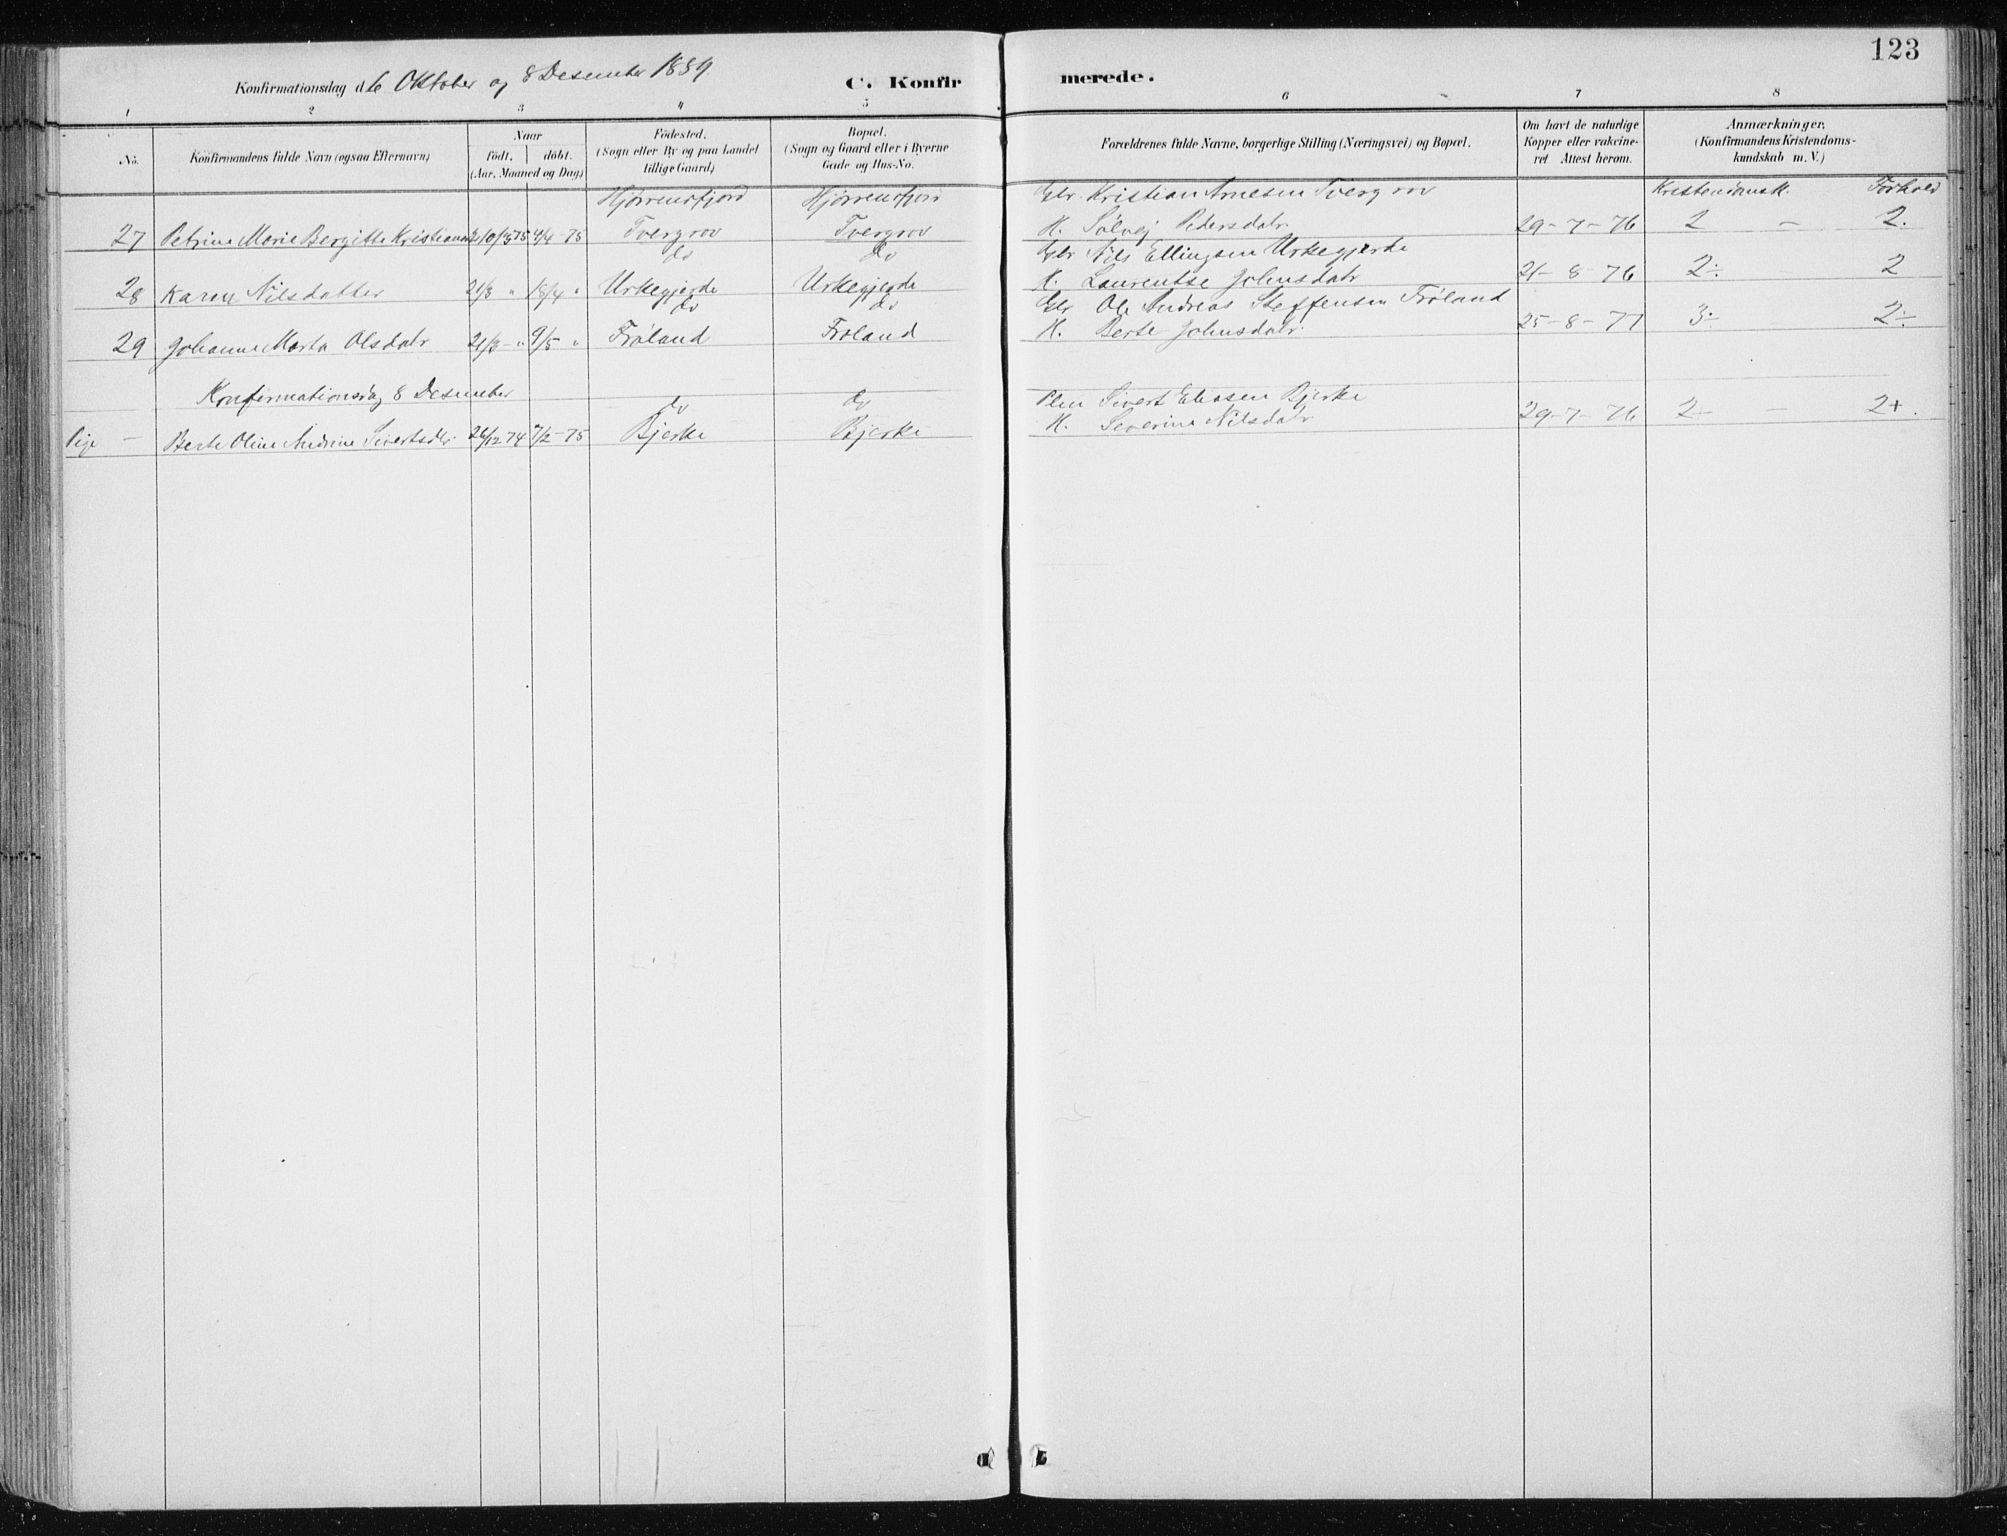 123
Konfirmationsdag d. 6 Oktober og 8 Desember 1889. C. Konfirmerede.
1 2 3 4 5 6 7 8
No. Konfirmandens fulde Navn (ogsaa Efternavn) Naar født. døbt. (Aar, Maaned og Dag) Fødested. (Sogn eller By og paa Landet tillige Gaard) Bopæl. (Sogn og Gaard eller i Byerne Gade og Hus-No. Forældrenes fulde Navne, borgerlige Stilling (Næringsvei) og Bopæl. Om havt de naturlige Kopper eller vakcineret Attest herom. Anmærkninger. (Konfirmandens Kristendomskundskab m. V.)
Hjørrensfjord Hjørrensfjord Gbr. Kristian Arnesen Tvergrov Kristendomsk. Forhold
27 Petrine Marie Bergitte 4/4 75 Tvergrov Tvergrov H. Sølvej Pedersdatr 29-7-76 2 - 2.
do do Gbr Nils Ellingsen Urkegjerde
28 Karen Nilsdatter 21/3 " 18/4 " Urkegjerde Urkegjerde H. Laurentse Johnsdatr 21-8-76 2÷ 2
do do Gbr Ole Andreas Steffensen Frøland
29 Johanne Marta Olsdatr 21/3-" 9/5 " Frøland Frøland H. Berte Johnsdatr. 25-8-77 3÷ 2÷
Konfirmationsdag 8 Desember
do do Sivert Eliasen Bjerke
Pige - Berte Oline Andrine Sivertsdtr 26/12 74 7/2-75 Bjerke Bjerke H. Severine Nilsdatr 29-7-76 2- - 2+.